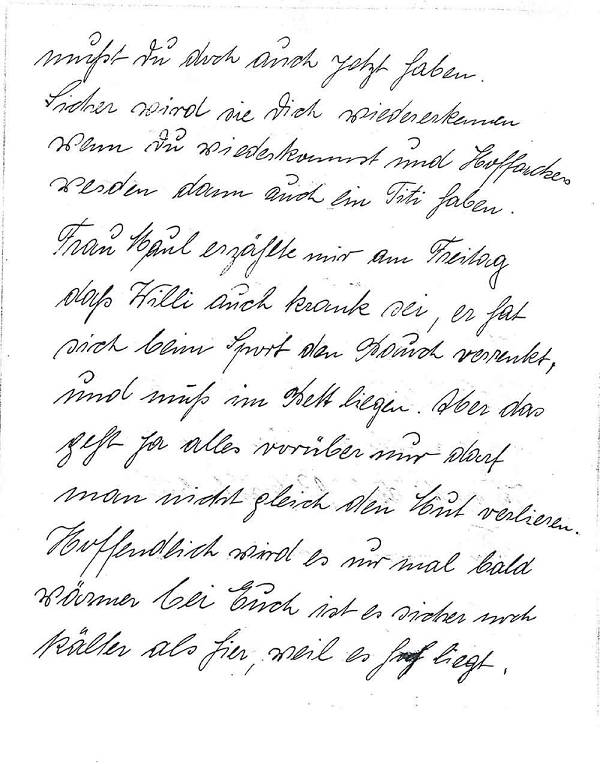 mußt Du doch auch jetzt haben.
Sicher wird sie Dich wiedererkennen
wenn Du wiederkommst und
werden dann auch ein Titi haben.
Frau Maul erzählte mir am Freitag
daß Willi auch krank sei, er hat
sich beim Sport den Bauch verrenkt,
und muß im Bett liegen. Aber das
geht ja alles vorüber nur darf
man nicht gleich den Mut verlieren.
Hoffendlich wird es nur mal bald
wärmer bei Euch ist es sicher noch
kälter als hier, weil es hoch liegt.